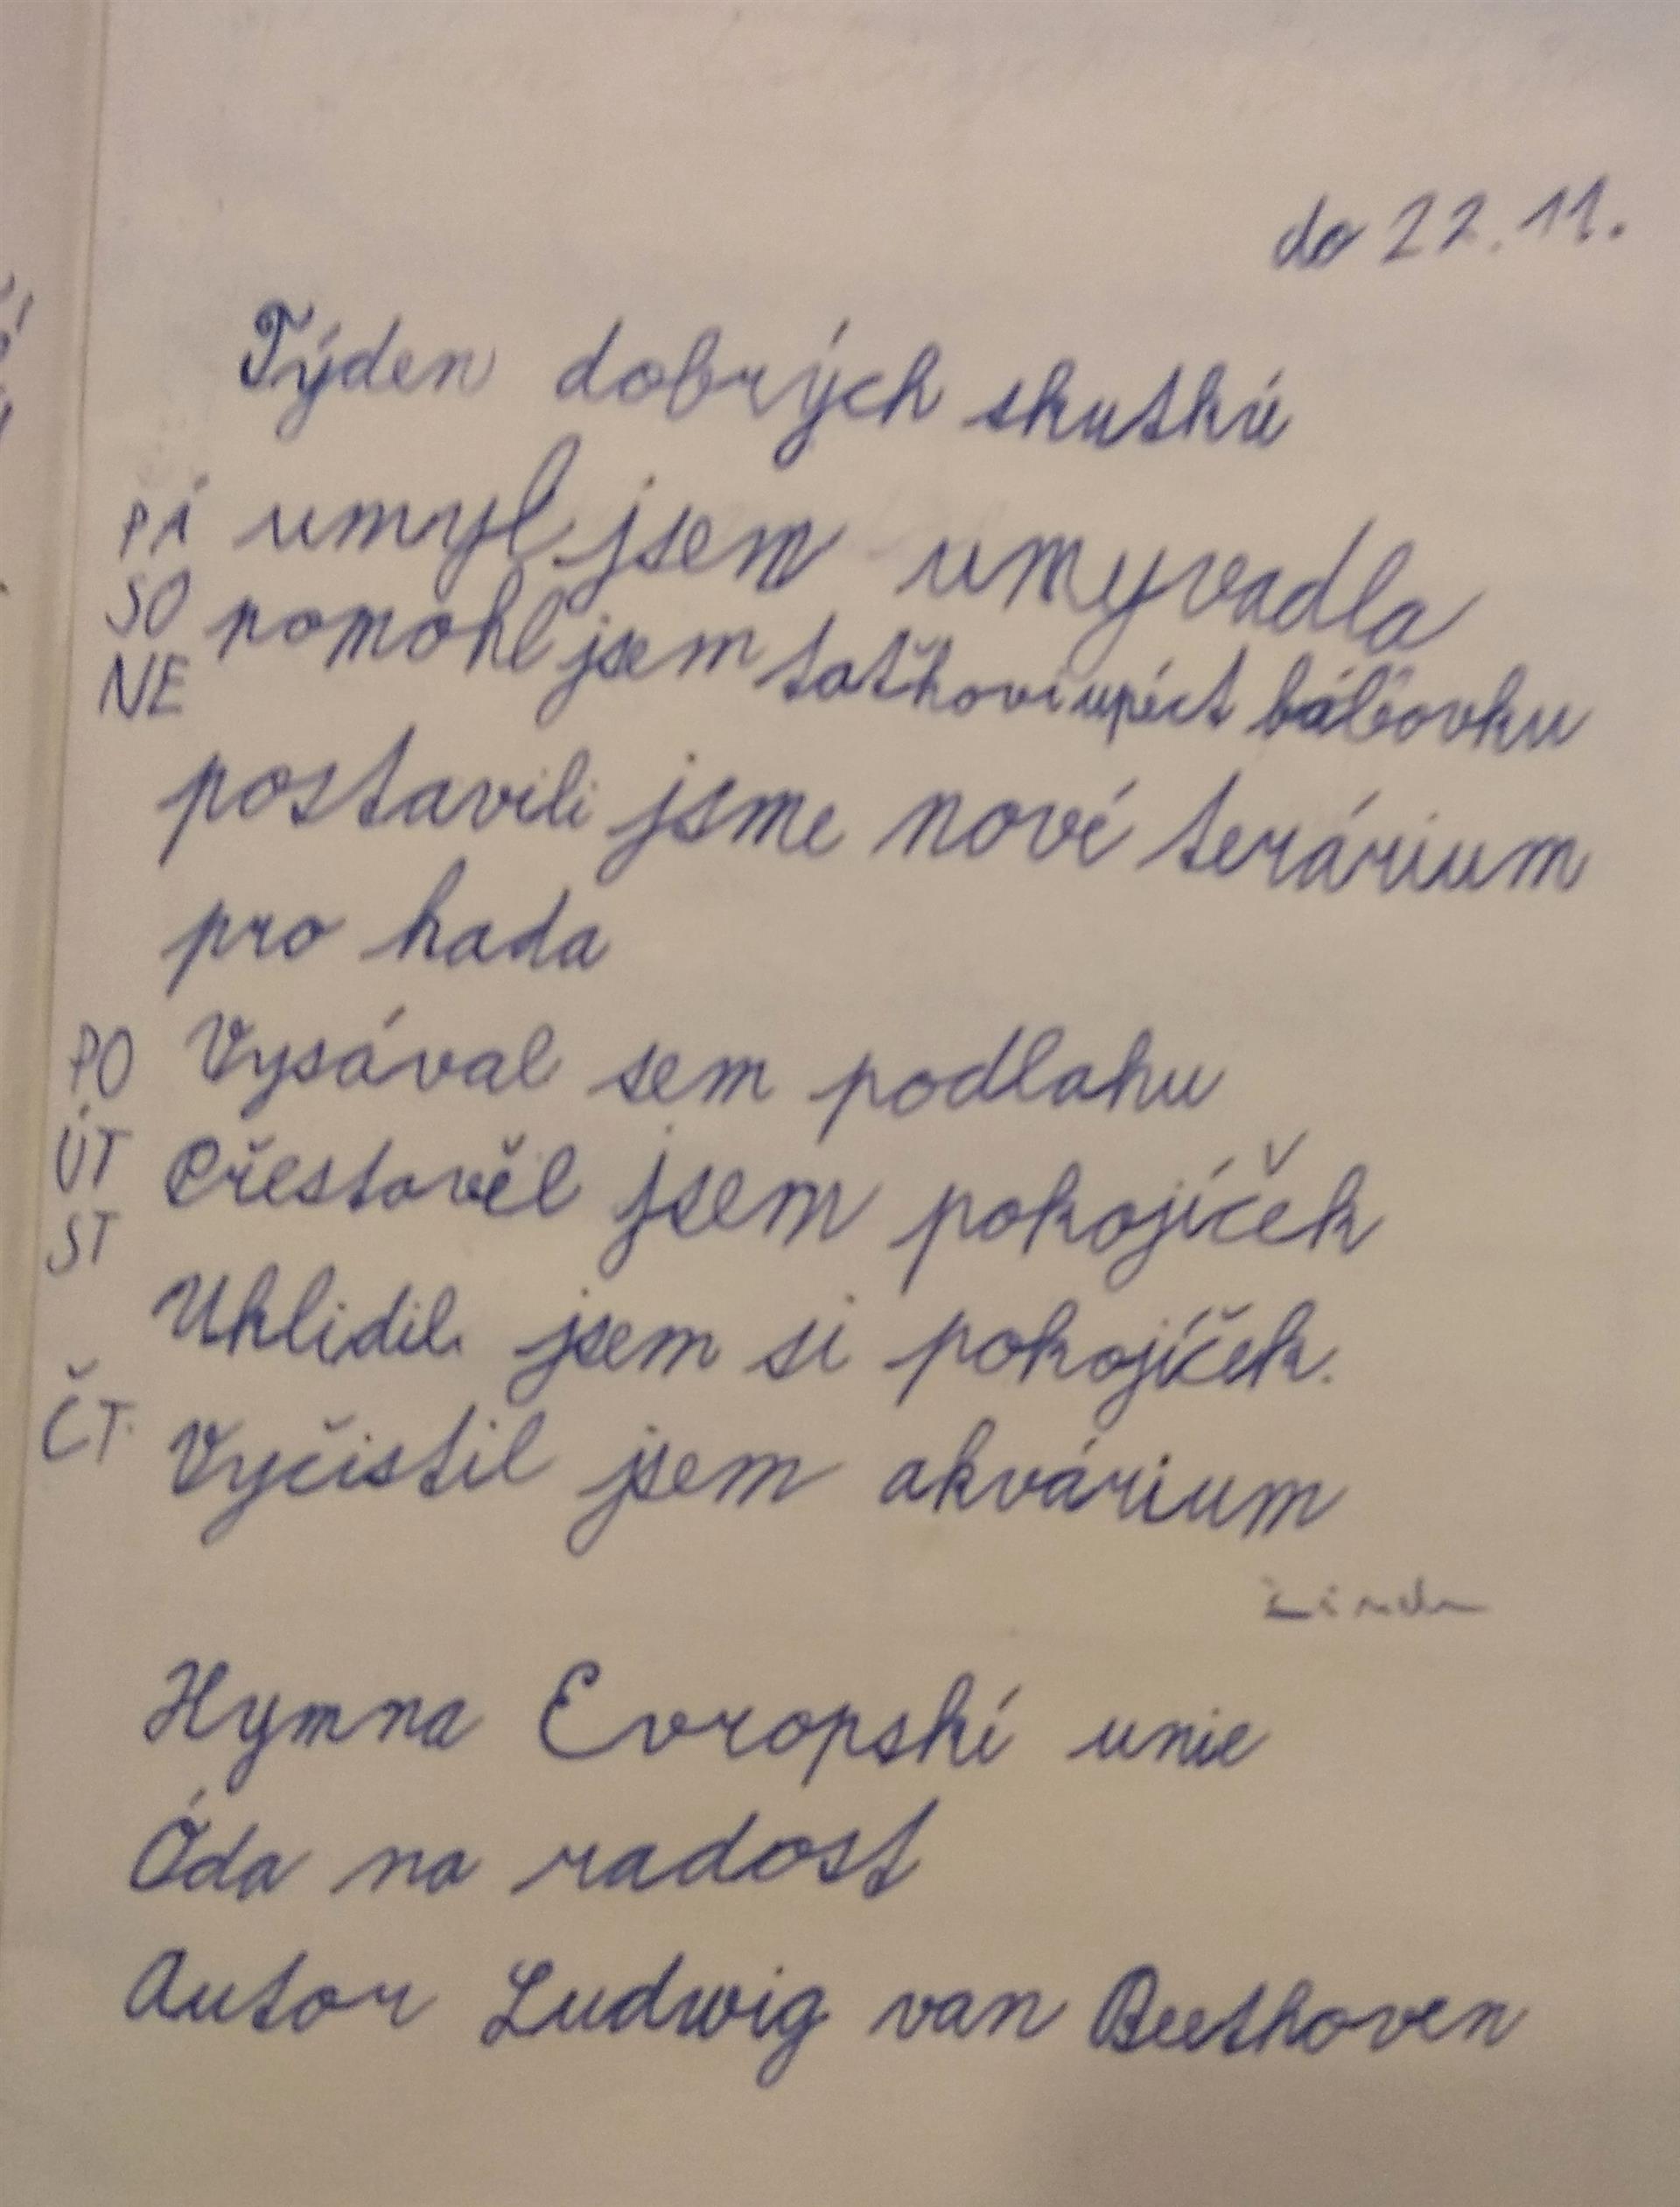 do 22.11.
Týden dobrých skutků
PÁ umyl jsem umyvadla
SO pomohl jsem taťkovi upéct bábovku
NE
postavili jsme nové terárium
pro hada
PO Vysával sem podlahu
ÚT Přestavěl jsem pokojíček
ST
Uklidil jsem si pokojíček.
ČT. Vyčistil jsem akvárium
Hymna Evropské unie
Óda na radost
Autor Ludwig van Beethoven